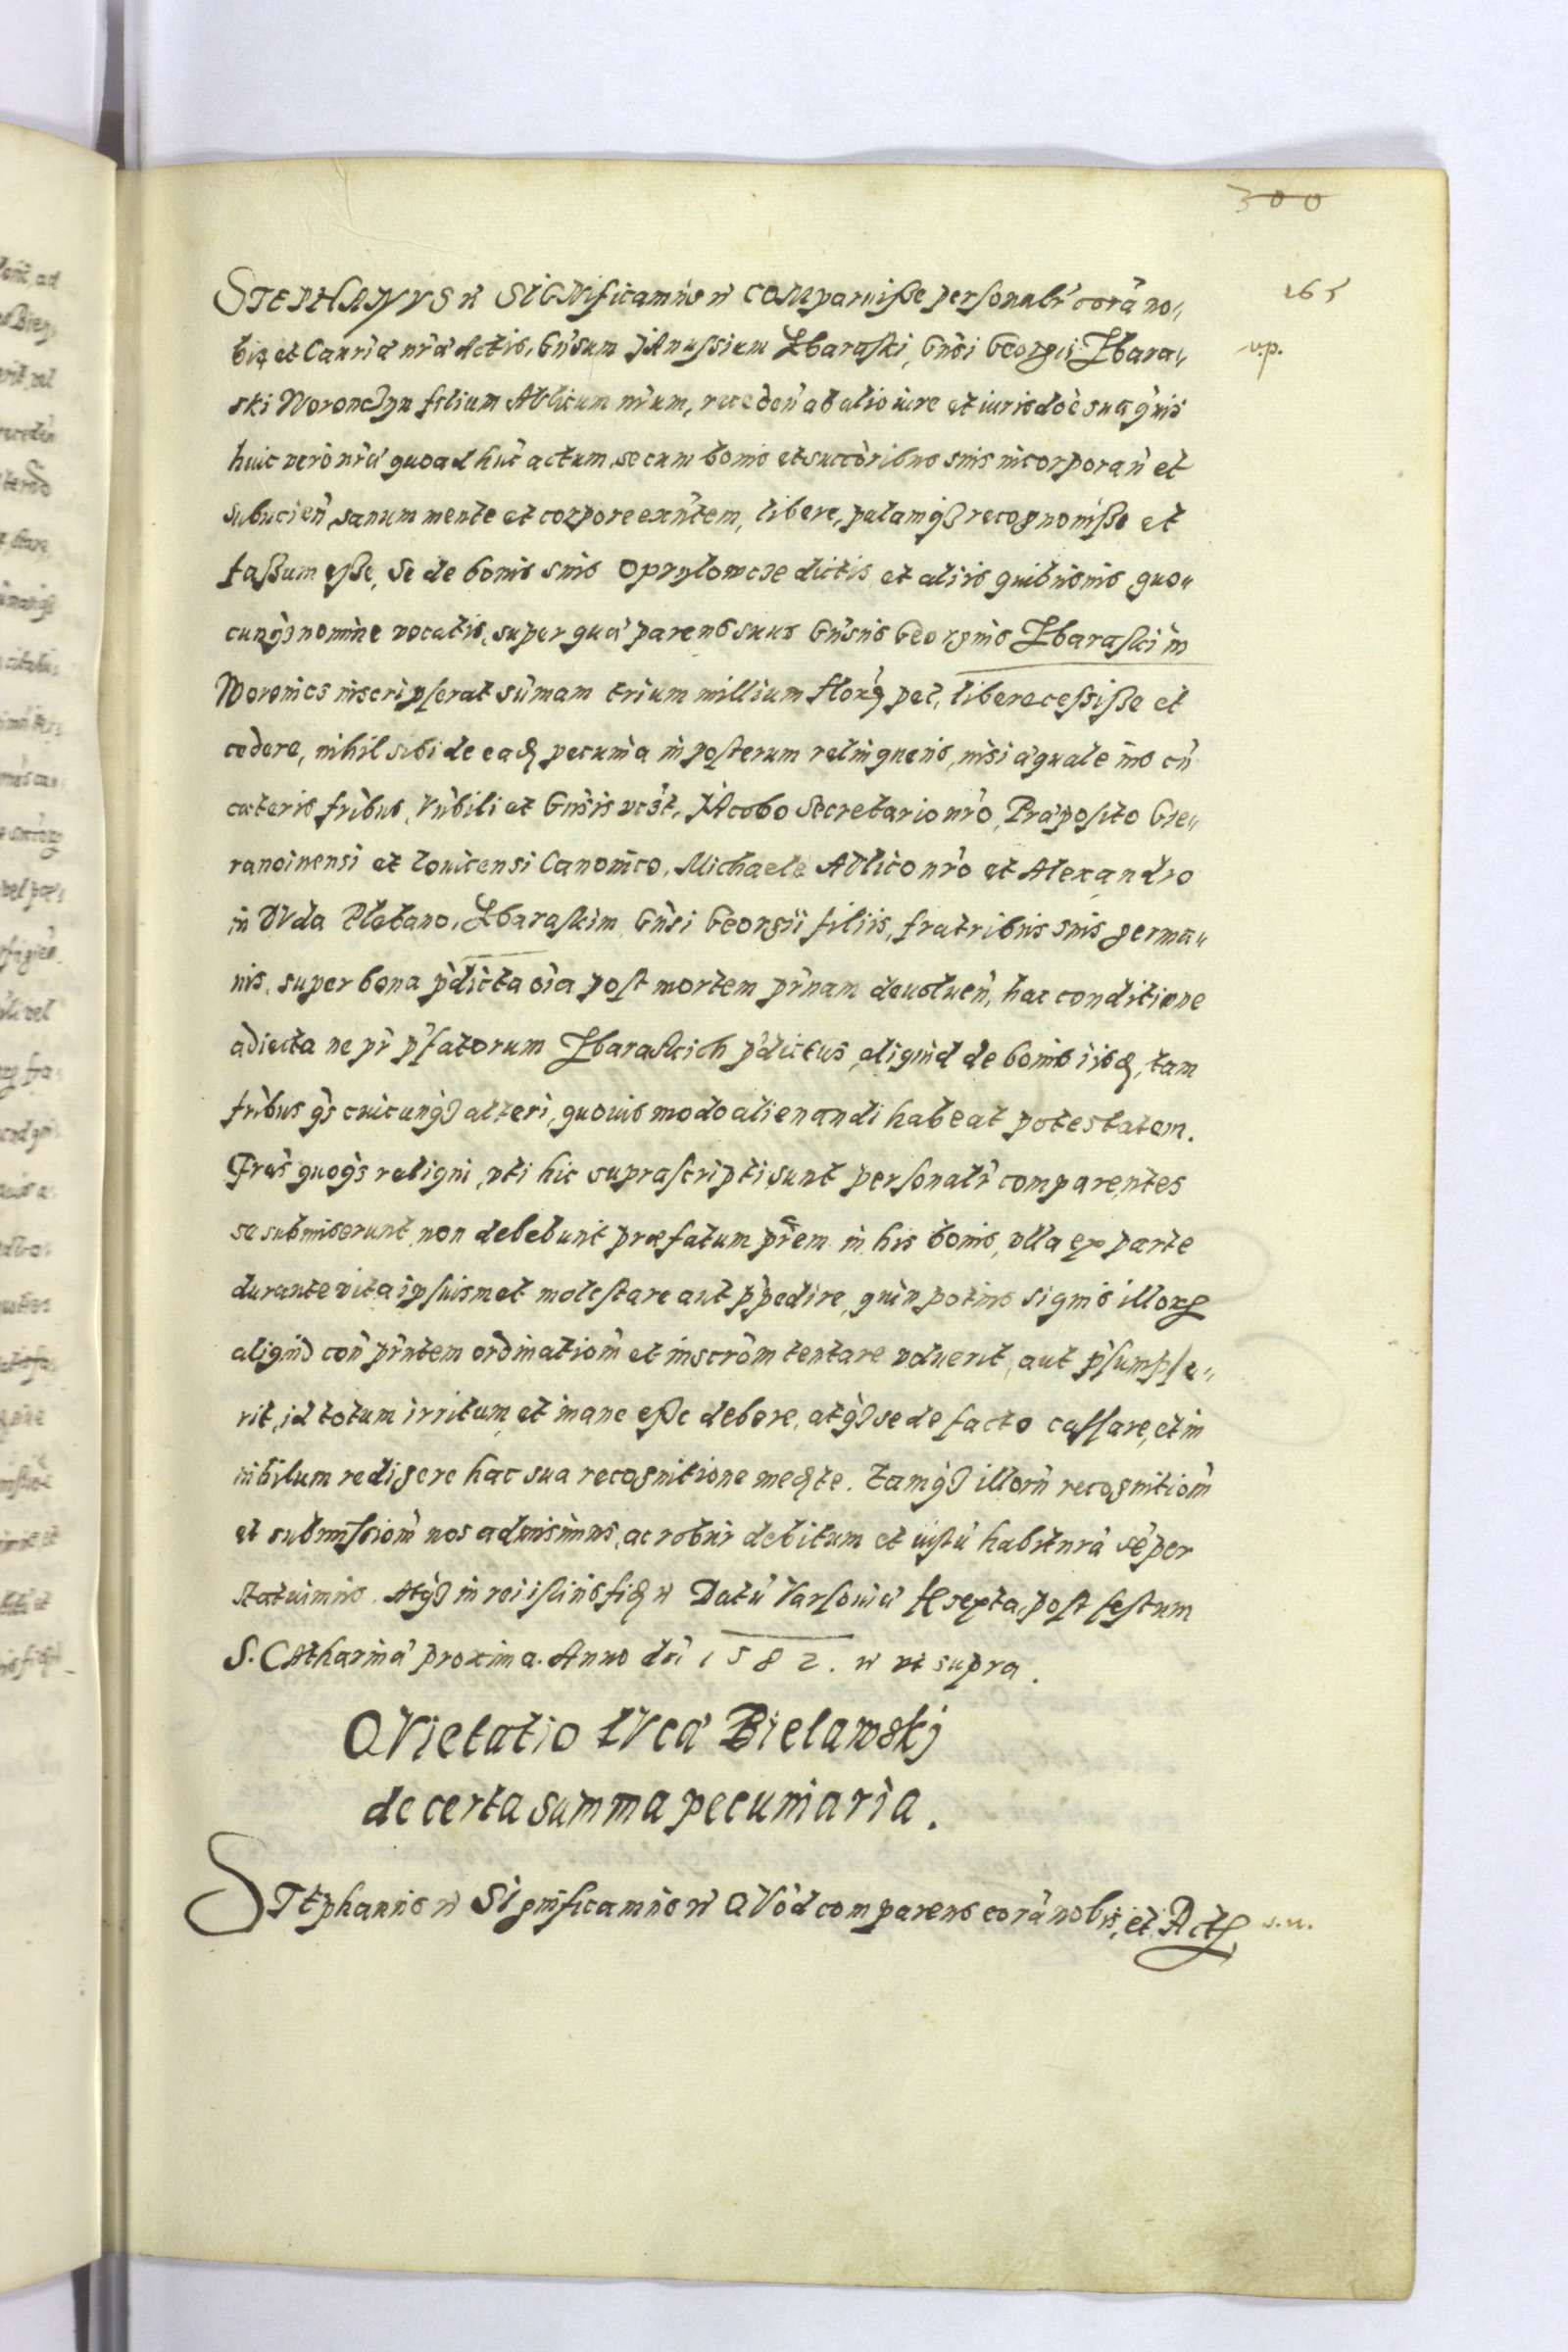 300
165
STEPHANVS etc SIGNificamus etc COMparuisse personalr̃ corã no„
v.p.
bis et Canr̃ia nr̃a Actis, Gñsum JAnussium Zbaraski, Gñsi Georgii Zbara„
ski Woronczyn filium AUlicum nrũm, receden̄ ab alio iure et iurisdõe sua q̃uis
huic vero nr̃a quoad hũc actum, se cum bonis et succõribus suis incorporan̄ et
subiicien̄, sanum mente et corpore exñtem, libere, palamq3 recognouisse et
fassum esse, Se de bonis suis Oprylowcze dictis et aliis quibusuis, quo„
cunq3 nomine vocatis, super qua parens suus Gñsus Georgius Zbaraski in
Woronies inscripserat sũmam trium millium florꝝ pol, libere cessisse et
cedere, nihil sibi de eadꝫ pecunia in posterum relinquens, nisi aquale ius cũ
cateris fr̃ibus, Vñbili et Gñsis vcꝫt, JAcobo Secretario nr̃o, Praposito Gie„
ranoinensi et Louicensi Canonico, Michaele AUlico nr̃o et Alexandro
in DVda Plebano, Zbaraskim Gñsi Georgii filiis, fratribus suis germa„
nis, super bona p̃dicta oĩa post mortem pr̃nam deuoluen̄, hac conditione
adiecta ne pr̃ p̃fatorum Zbaraskich p̃dictus, aliquid de bonis iisdꝫ, tam
fr̃ibus q̃3 cuicunq3 alteri, quouis modo alienandi habeat potestatem.
Fres̃ quoq3 reliqui, vti hic suprascripti sunt personalr̃ comparentes
se submiserunt, non debebunt præfatum pr̃em in his bonis, vlla ex parte
durante vita ipsiusmet molestare aut p̃pedire, quin potius si quis illoꝝ
aliquid con̄ pr̃ntem ordinatiom̃ et inscrõm tentare voluerit, aut p̃sumpse„
rit, id totum irritum, et inane esse debere, atq3 se de facto cassare, et in
nihilum redigere hac sua recognitione medꝫte. Tamq3 illorũ recognitiom̃
et submissiom̃ nos admisimus, ac robur debitum et iustũ habiturã sẽper
statuimus. Atq3 in rei istius fidꝫ etc Datũ Varsouia fe sexta, post festum
S. CAtharina proxima. Anno dñi 1582. etc vt supra.
QVietatio LVca Bielawskj
de certa summa pecuniaria.
STEphanus etc Significamus etc QVod comparens corã nobis, et Actꝭ
s.u.